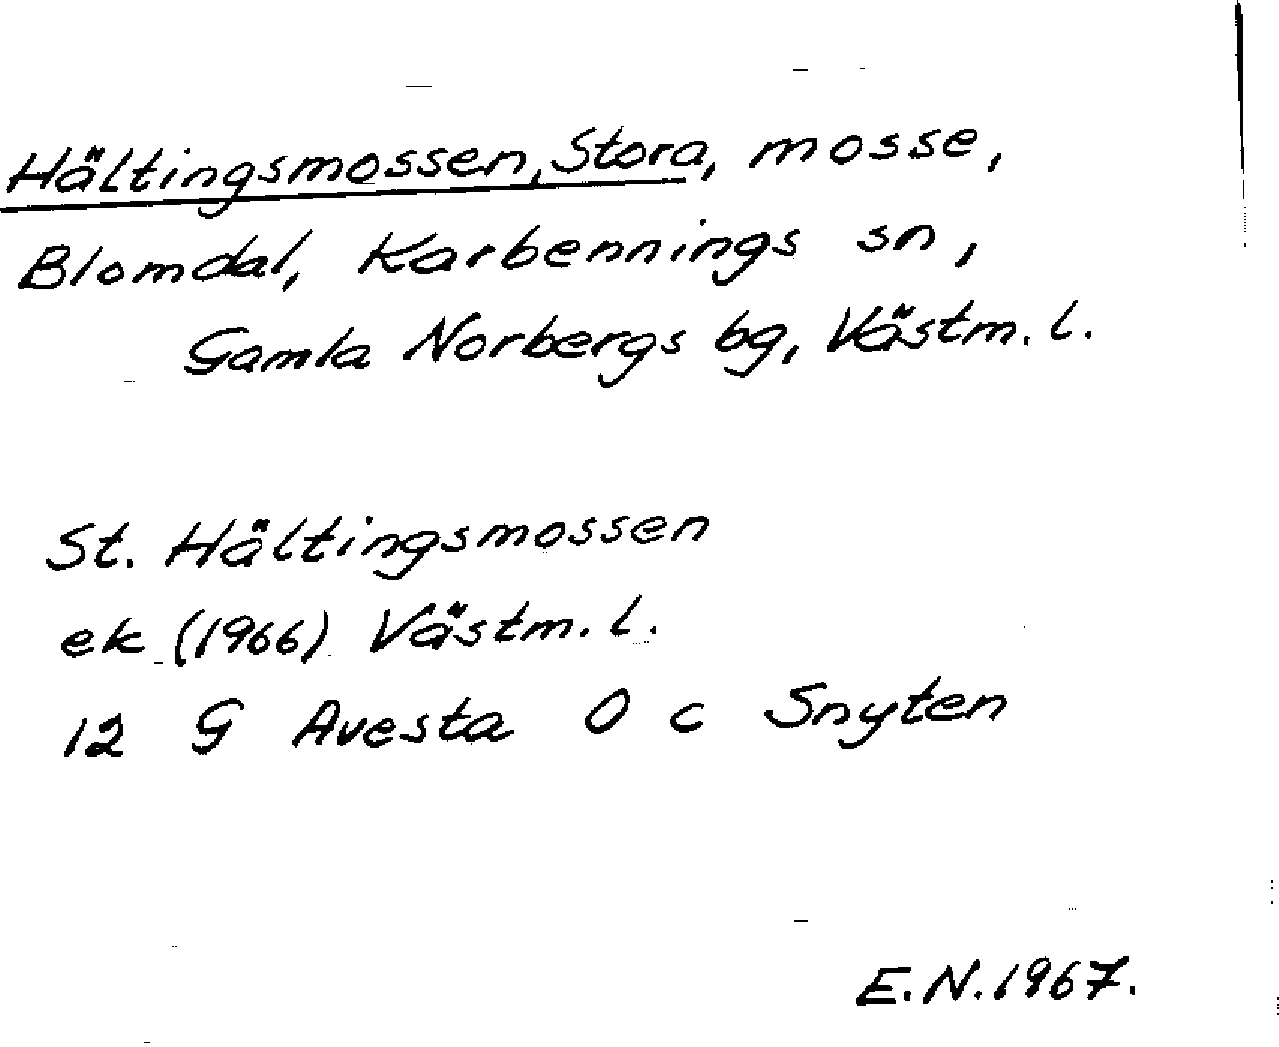 Hältingsmossen, Stora, mosse,
Blomdal, Karbennings sn,
Gamla Norbergs bg, Västm. l.
St. Hältingsmossen
ek (1966) Västm. l.
12 G Avesta O c Snyten
E.N. 1967.